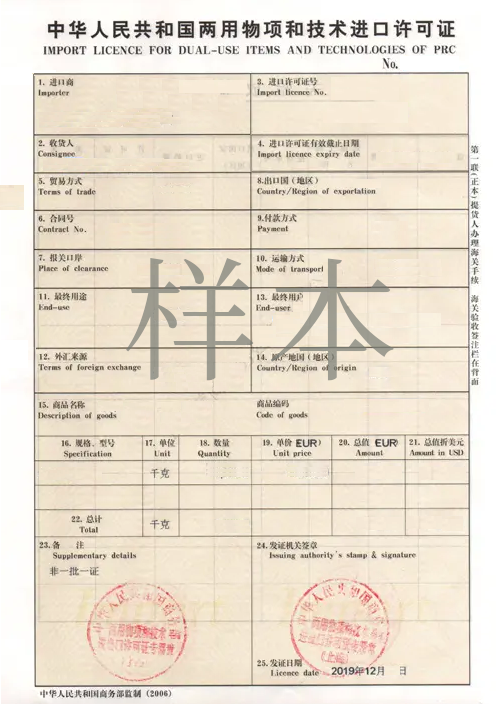 中华人民共和国两用物项和技术进口许可证
IMPORT LICENCE FOR DUAL-USE ITEMS AND TECHNOLOGIES OF PRC
No.
1. 进口商
Importer
3. 进口许可证号
Import licence No.
2. 收货人
Consignee
4. 进口许可证有效截止日期
Import licence expiry date
5. 贸易方式
Terms of trade
8.出口国（地区）
Country/Region of exportation
6. 合同号
Contract No.
9.付款方式
Payment
7. 报关口岸
Place of clearance
10. 运输方式
Mode of transport
11. 最终用途
End-use
13. 最终用户
End-user
12. 外汇来源
Terms of foreign exchange
14. 原产地国（地区）
Country/Region of origin
样本
15. 商品名称
Description of goods
商品编码
Code of goods
16. 规格、型号
Specification
17. 单位
Unit
18. 数量
Quantity
19. 单价 EUR)
Unit price
20. 总值 EUR)
Amount
21. 总值折美元
Amount in USD
千克
22. 总计
Total
千克
23. 备 注
Supplementary details
非一批一证
24. 发证机关签章
Issuing authority's stamp & signature
中华人民共和国商务部
两用物项和技术
进出口许可证专用章
中华人民共和国商务部
两用物项和技术
进出口许可证专用章
(上海)
25. 发证日期
Licence date 2019年12月 日
中华人民共和国商务部监制 (2006)
第一联(正本)提货人办理海关手续 海关验收签注栏在背面